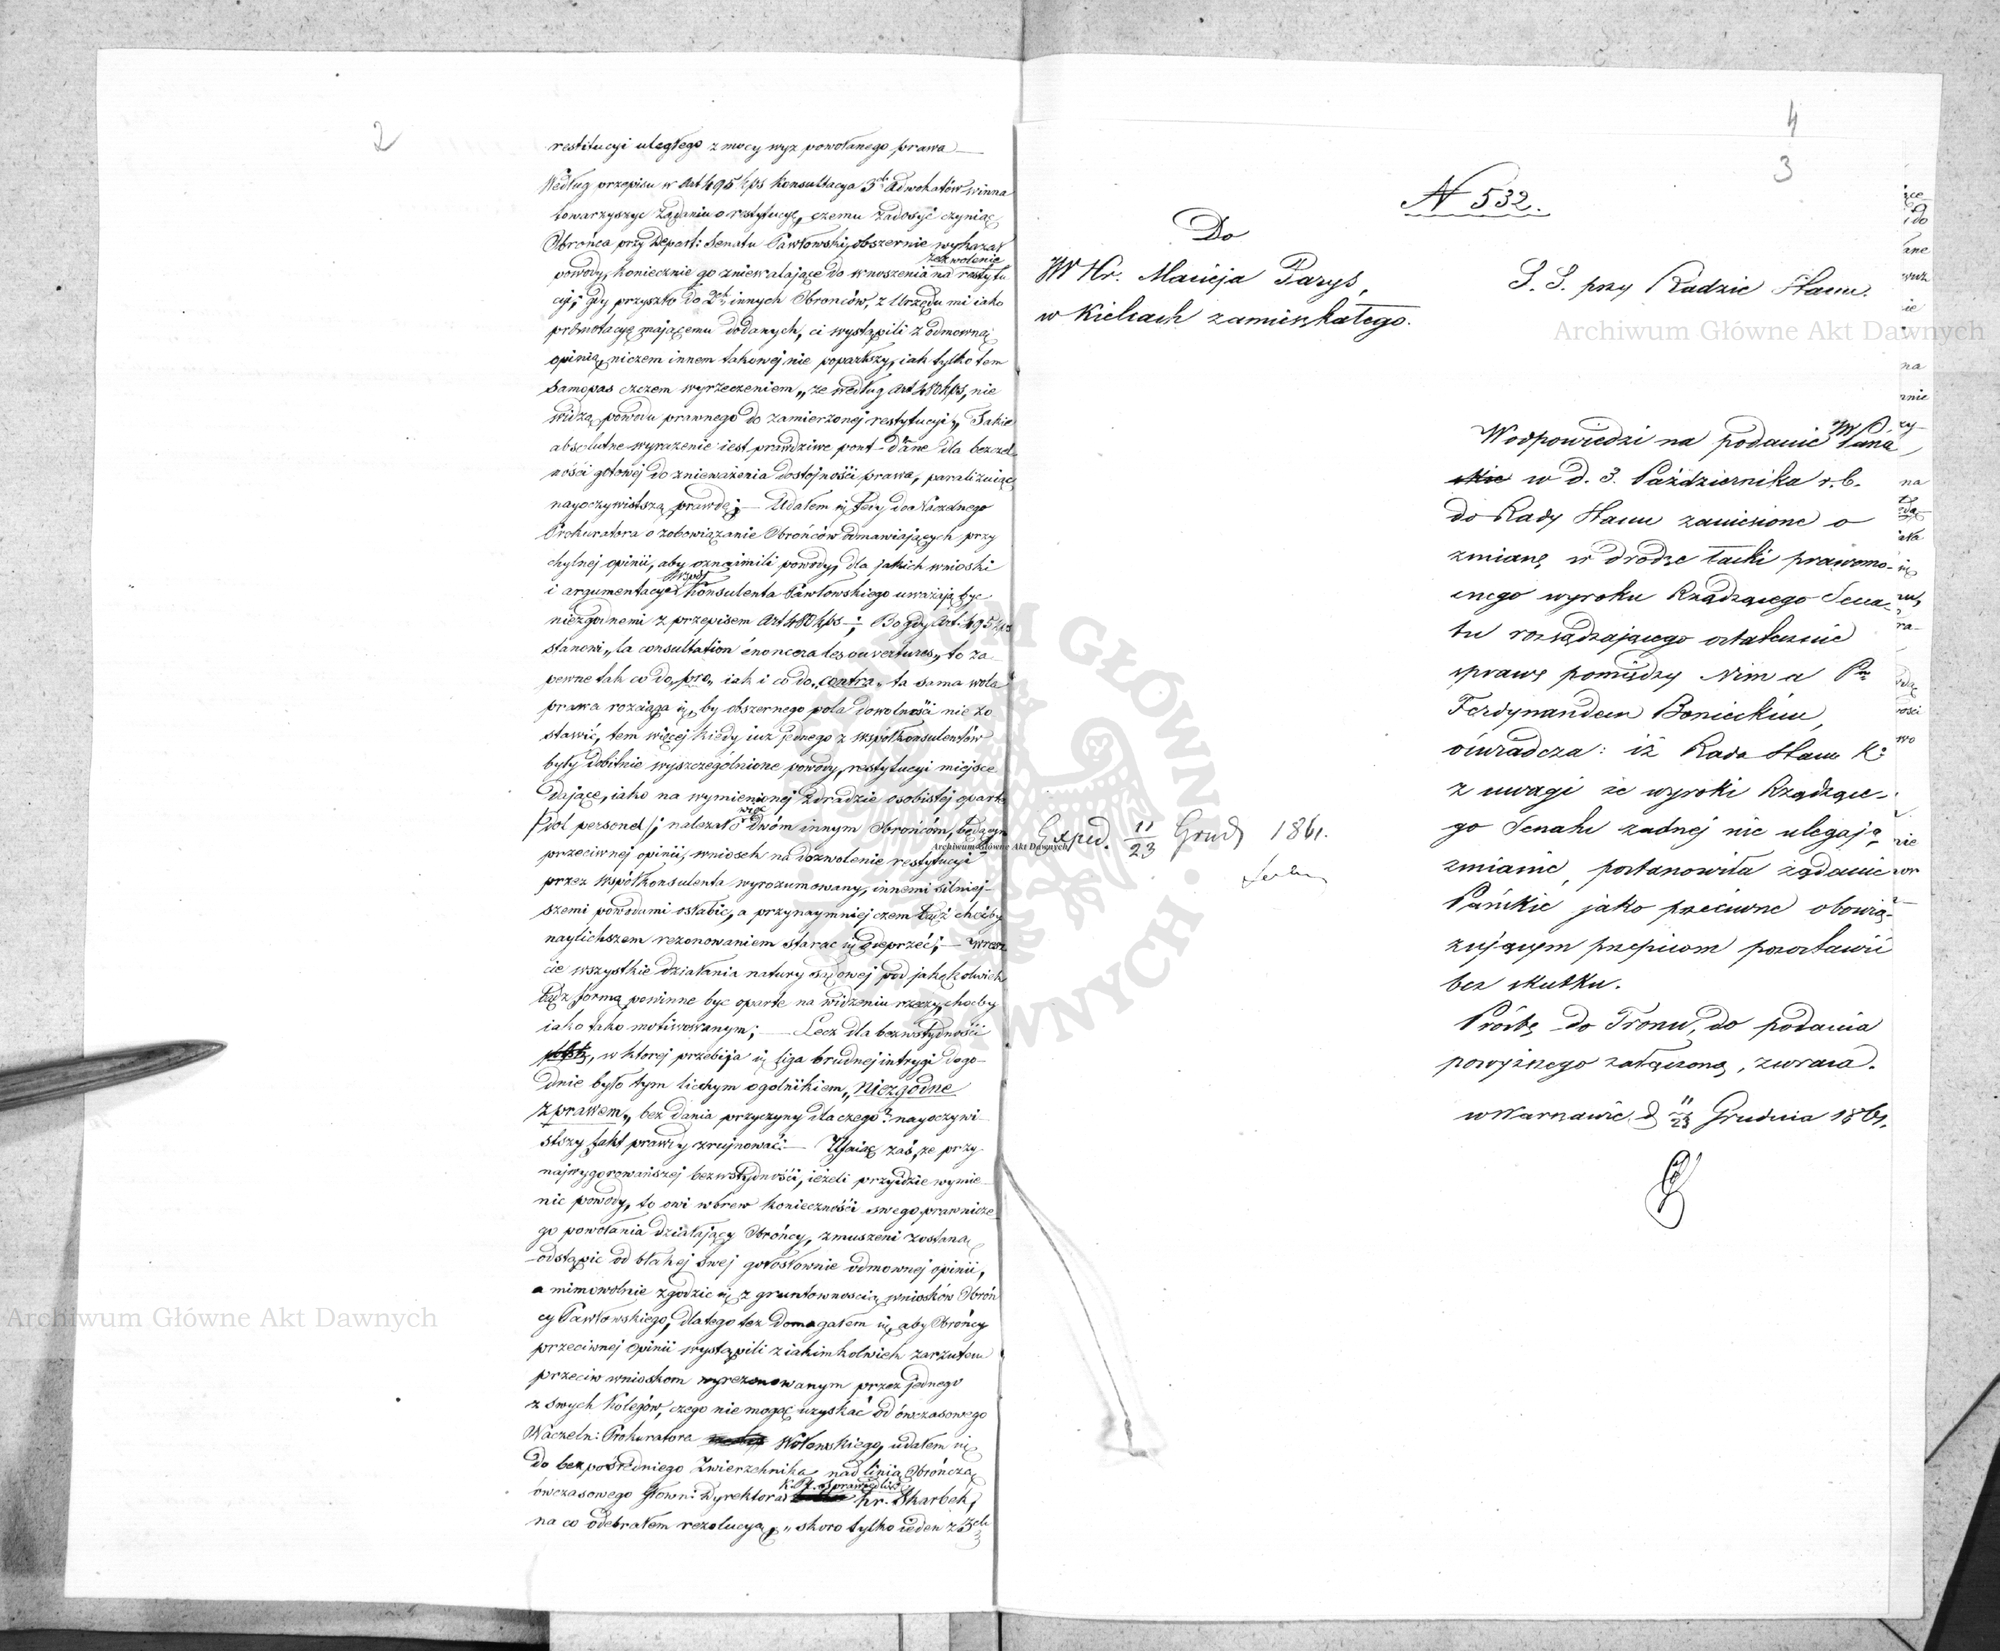 2
restitucyi uległego z mocy wyż powołanego prawa —
Według przepisu w Art 495 kps konsultacya 3ch Adwokatów winna
towarzyszyć żądaniu o restytucyę, czemu zadosyć czyniąc
Obrońca przy Depart: Senatu Pawłowski, obszernie wykazał
zezwolenie
powody, koniecznie go zniewalające do wnoszenia na restytu
cyę; gdy przyszło do 2ch innych Obrońców, z Urzędu mi iako
dodanych, ci wystąpili z odmowną
opinią, niczem innem takowej nie poparłszy, iak tylko tem
samopas czczem wyrzeczeniem „że według Art 480 kps, nie
widzą powodu prawnego do zamierzonej restytucyi„ Takie
absolutne wyrażenie iest prawdziwe pont-d'ane dla bezczel
ności gotowej do znieważenia dostojności prawa, paraliżuiąc
nayoczywistszą prawdę; — Udałem się tedy do Naczelnego
Prokuratora o zobowiązanie Obrońców odmawiających przy
chylnej opinii, aby oznaimili powody, dla jakich wnioski
i argumentacye Konsulenta Pawłowskiego uważają być
niezgodnemi z przepisem Art 480 kps —; Bo gdy Art: 495 kps
stanowi „la consultation énoncera les ouvertures„ to za
pewne tak co do „pro„ iak i co do „contra„ ta sama wola
prawa rozciąga się, by obszernego pola dowolności nie zo
stawić, tem więcej kiedy iuż jednego z współkonsulentów
były dobitnie wyszczególnione powody, restytucyi miejsce
dające, iako na wymienionej zdradzie osobistej oparte
więc
/dol personel/; należało dwóm innym Obrońcom, będącym
przeciwnej opinii, wniosek na dozwolenie restytucyi
przez Współkonsulenta wyrozumowany, innemi silniej-
szemi powodami osłabić, a przynaymniej czem bądź choćby
naylichszem rezonowaniem starać się odeprzeć; — wresz
cie wszystkie działania natury sądowej pod jakąkolwiek
bądź formą powinne być oparte na widzeniu rzeczy, choćby
iako tako motiwowanym; — Lecz dla bezwstydności
, w ktorej przebija się liga brudnej intrygi dogo
dnie było tym lichym ogolnikiem, „niezgodne
z prawem„ bez dania przyczyny dlaczego? nayoczywi
stszy fakt prawdy zrujnować: — Ufaiąc zaś, że przy
najwygorowańszej bezwstydności, ieżeli przyidzie wymie
nić powody, to owi wbrew konieczności swego prawnicze
go powołania działający Obrońcy, zmuszeni zostaną
odstąpić od błahej swej gołosłownie odmownej opinii,
a mimowolnie zgodzić się z gruntownością wniosków Obroń
cy Pawłowskiego, dlatego też domagałem się, aby Obrońcy
przeciwnej opinii wystąpili z iakimkolwiek zarzutem
przeciw wnioskom wyrezonowanym przez jednego
z swych kolegów, czego nie mogąc uzyskać od ówczasowego
Naczeln: Prokuratora Wołowskiego, udałem się
do bezpośredniego Zwierzchnika nad linią Obrończą
K. R. Sprawiedliw:
ówczasowego Głown: Dyrektora hr. Skarbek,
na co odebrałem rezolucyą, „skoro tylko ieden z 3ch
4
3
N 532.
Do
JW Hr. Macieja Parys,
w Kielcach zamieszkałego.
S. S. przy Radzie Stanu.
W odpowiedzi na podanie JW Pana
w d. 3. Października r. b.
do Rady Stanu zaniesione o
zmianę w drodze łaski prawomo-
cnego wyroku Rządzącego Sena-
tu rozsądzającego ostatecznie
sprawę pomiędzy Nim a Pm
Ferdynandem Bonieckim,
oświadcza: iż Rada Stanu K:
z uwagi że wyroki Rządzące-
go Senatu żadnej nie ulegają
zmianie, postanowiła żądanie
Pańskie jako przeciwne obowią-
zującym przepisom pozostawić
bez skutku.
Prośbę do Tronu, do podania
powyższego załączoną, zwraca.
w Warszawie d 11/23 Grudnia 1861.
Exped. 11/23 Grud 1861.
Archiwum Główne Akt Dawnych
Archiwum Główne Akt Dawnych
Archiwum Główne Akt Dawnych